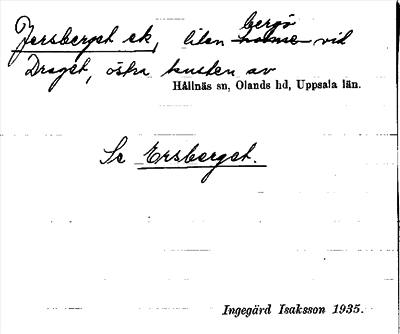 Jersberget ek, liten bergö vid
Draget, östra kusten av
Hållnäs sn, Olands hd, Uppsala län.
Se Ersberget.
Ingegärd Isaksson 1935.